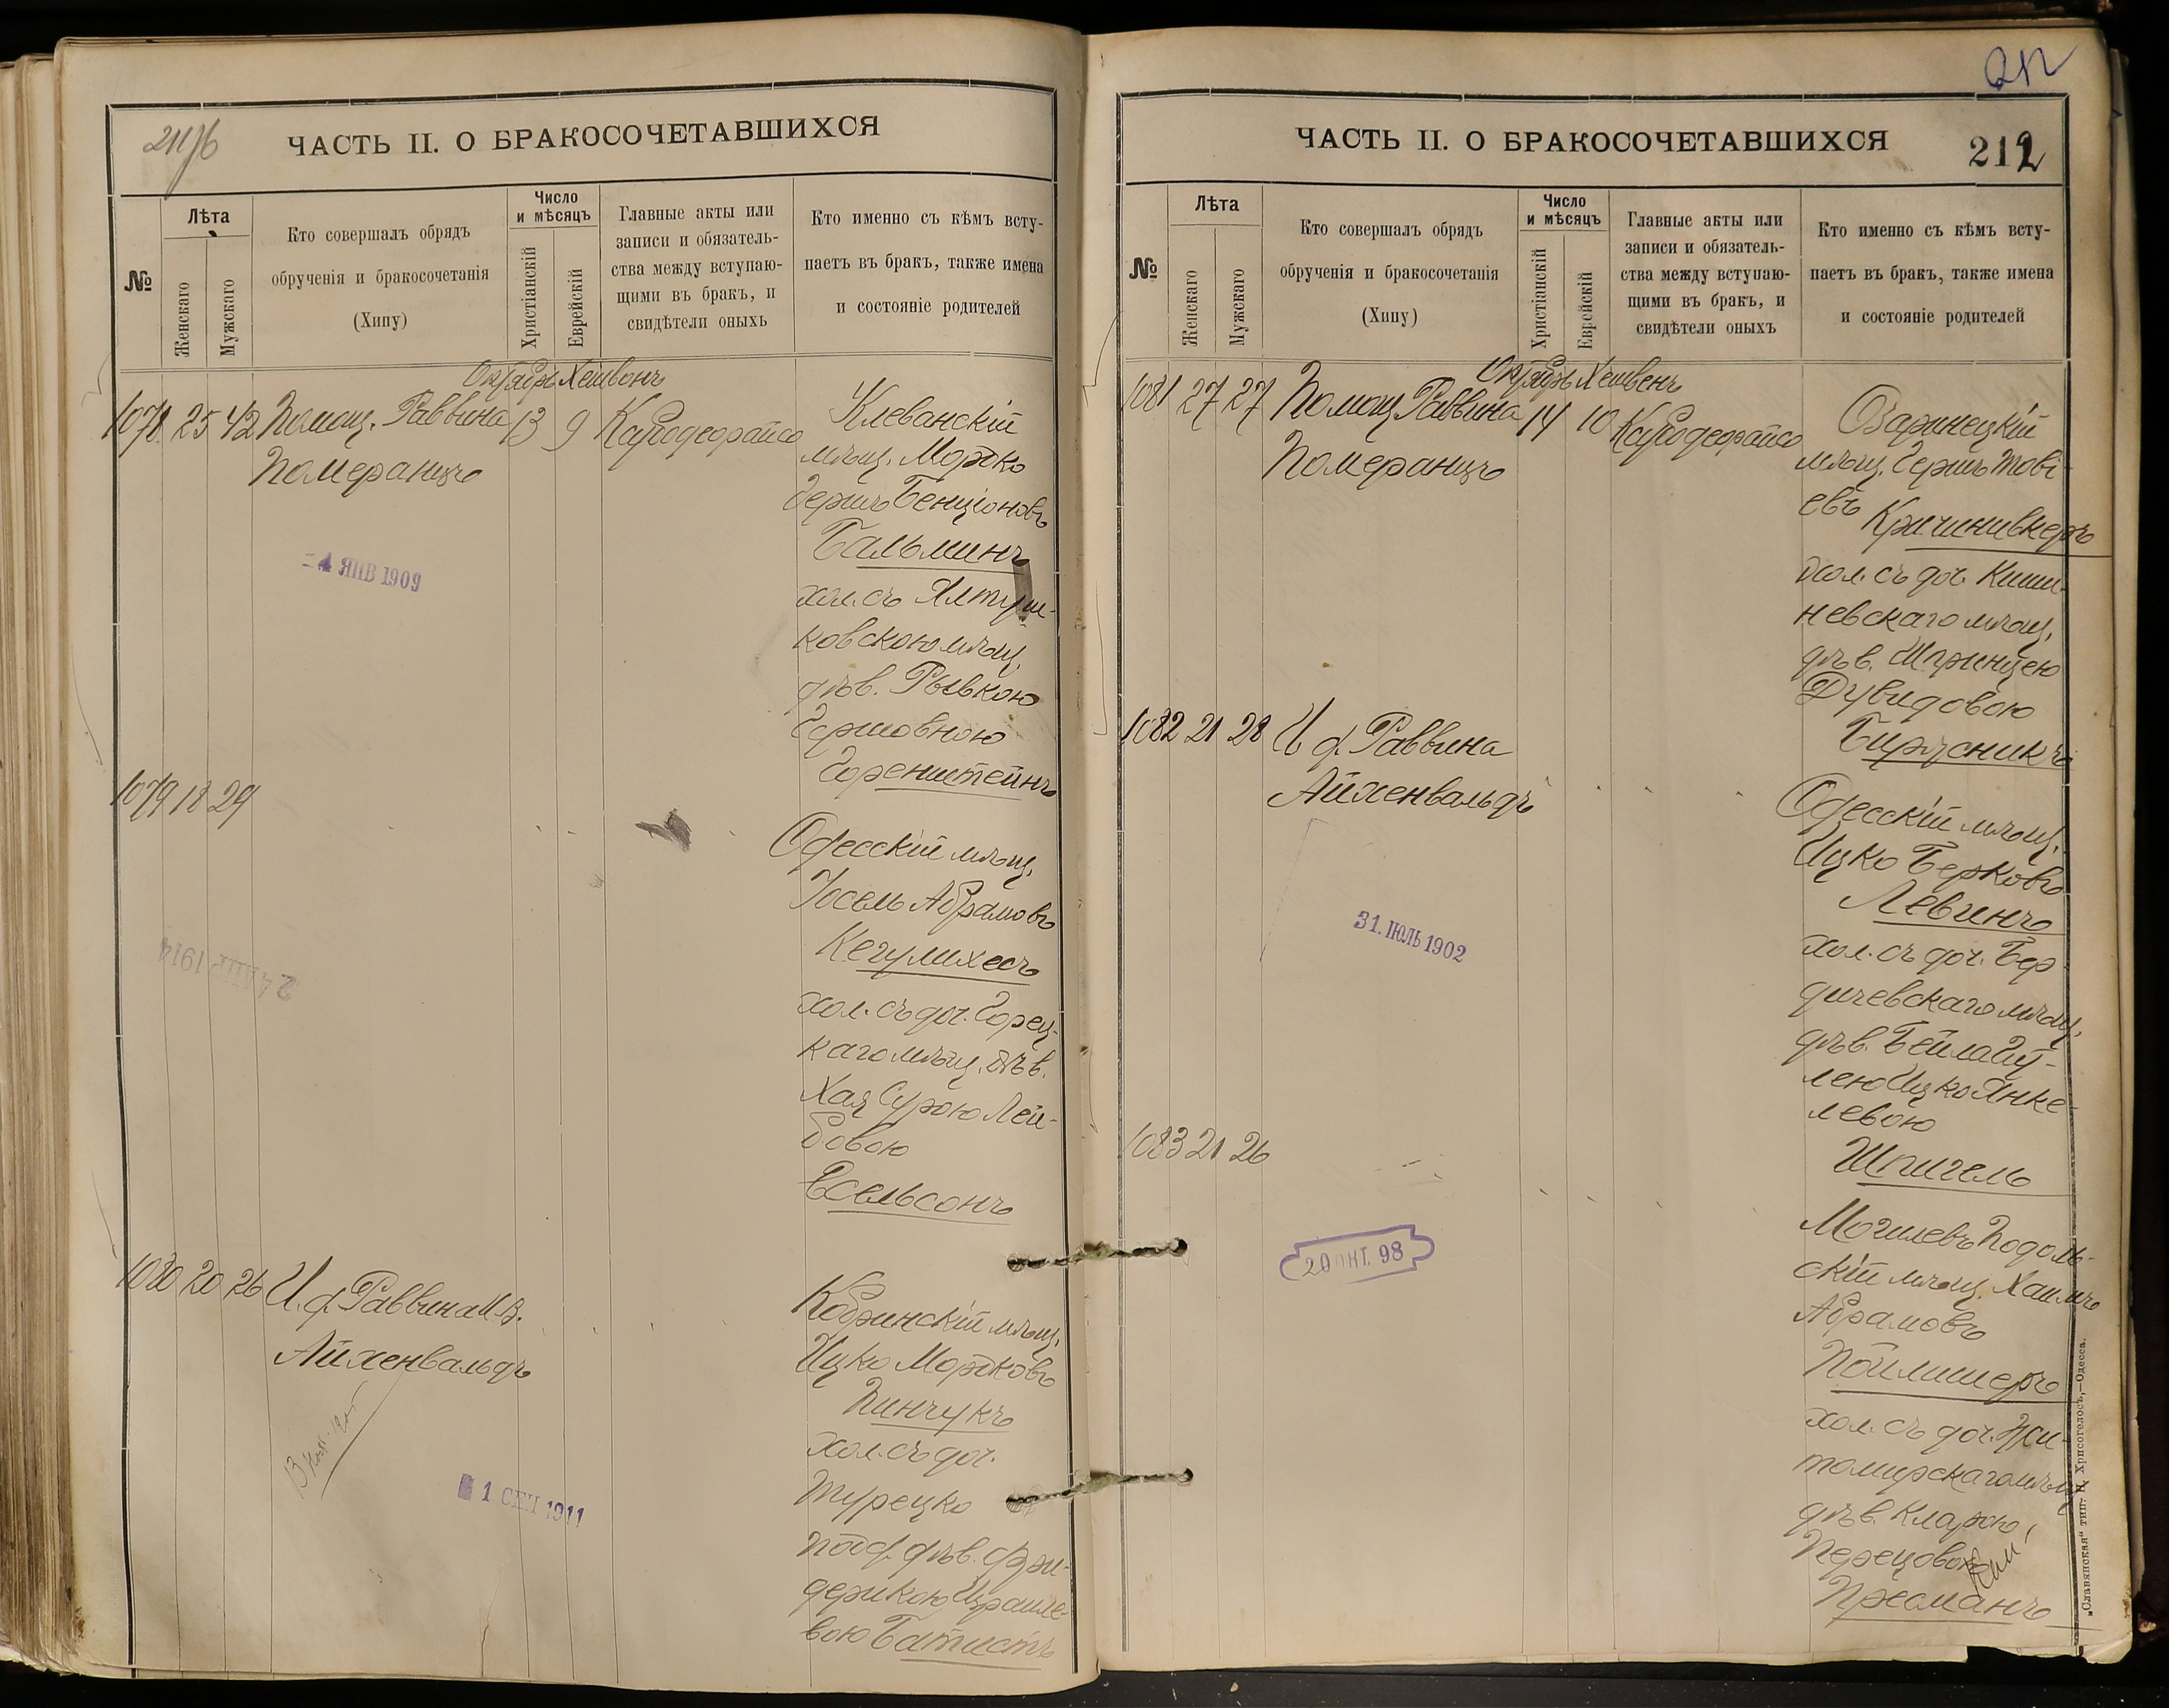 211 об
ЧАСТЬ II. О БРАКОСОЧЕТАВШИХСЯ
№
Лѣта
Женскаго
Мужскаго
Кто совершалъ обрядъ
обрученія и бракосочетанія
(Хипу)
Число
и мѣсяцъ
Христіанскій
Еврейскій
Главные акты или
записи и обязатель-
ства между вступаю-
щими въ бракъ, и
свидѣтели оныхъ
Кто именно съ кѣмъ всту-
паетъ въ бракъ, также имена
и состояніе родителей
Октябрь Хешвонъ
1078 25 42 Помощ. Раввина 13 9
Померанцъ
Клеванскій
мѣщ. Мордко
Гершъ Бенціоновъ
Бальминъ
хол. съ Ялтуш-
ковскою мѣщ.
дѣв. Рывкою
Гершовною
Горенштейнъ
4 ЯНВ 1909
1079 18 29
Одесскій мѣщ.
Іосель Абрамовъ
Кегулихесъ
хол. съ доч. Горец-
каго мѣщ. дѣв.
Хая Сурою Лей-
бовою
Есельсонъ
24 АПР 1914
1080 20 26 И. д. Раввина И.В.
Айхенвальдъ
Кобринскій мѣщ.
Ицко Мордковъ
Пинчукъ
хол. съ доч.
Турецко
под. дѣв. Фри-
дерикою Израиле-
вою Батистъ
1 СЕН 1911
212
ЧАСТЬ II. О БРАКОСОЧЕТАВШИХСЯ
212
№
Лѣта
Женскаго
Мужскаго
Кто совершалъ обрядъ
обрученія и бракосочетанія
(Хипу)
Число
и мѣсяцъ
Христіанскій
Еврейскій
Главные акты или
записи и обязатель-
ства между вступаю-
щими въ бракъ, и
свидѣтели оныхъ
Кто именно съ кѣмъ всту-
паетъ въ бракъ, также имена
и состояніе родителей
Октябрь Хешвенъ
1081 27 27 Помощ. Раввина 14 10
Померанцъ
Озаринецкій
мѣщ. Гершъ Тові-
евъ Кричинивкеръ
хол. съ доч. Киши-
невскаго мѣщ.
дѣв. Шпринцею
Дувидовою
Бирусникъ
1082 21 28 И д. Раввина
Айхенвальдъ
Одесскій мѣщ.
Ицко Берковъ
Левинъ
хол. съ доч. Бер-
дичевскаго мѣщ.
дѣв. Бейла Гит-
лею Ицко Янке-
левою
Шпигель
31. ІЮЛЬ 1902
1083 21 26
Могилевъ Подоль-
скій мѣщ. Хаимъ
Абрамовъ
Пойлишеръ
хол. съ доч. Жи-
томирскаго мѣщ.
дѣв. Кларою
Перецовою
Пресманъ
20 ОКТ. 98
„Славянская“ тип. Н. Хрисогелосъ,—Одесса.